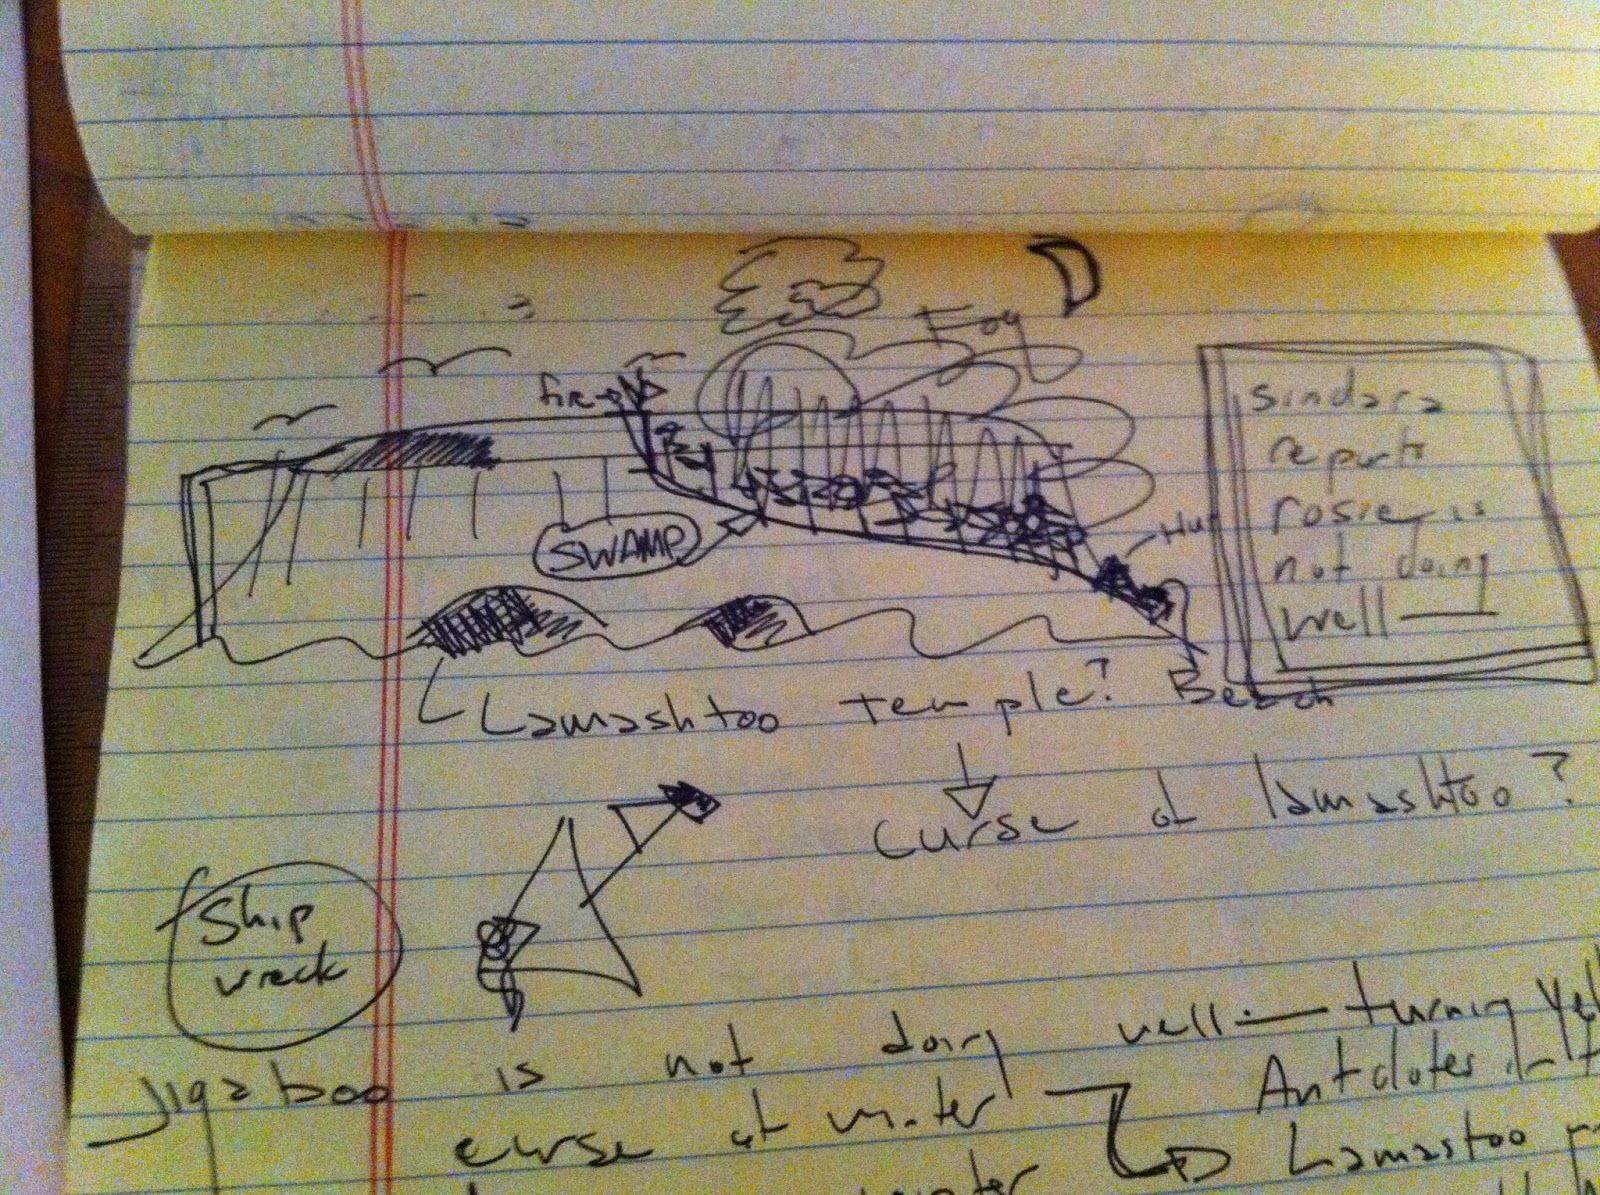 Fog
fire
sindara
reports
rosie is
not doing
well —
SWAMP
Lamashtoo temple?
Beach
curse of lamashtoo?
Ship
wreck
Jigaboo is not doing well — turning
curse of
Antidotes
Lamastoo